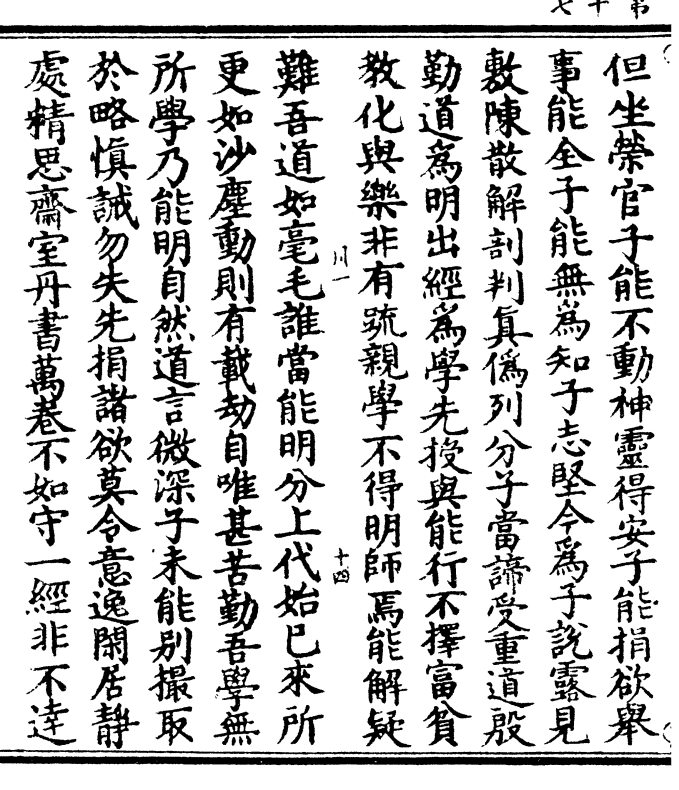 第十七
但坐榮官子能不動神靈得安子能捐欲舉
事能全子能無為知子志堅今為子說露見
敷陳散解剖判真偽列分子當諦受重道殷
勤道為明出經為學先授與能行不擇富貧
教化與樂非有疏親學不得明師焉能解疑
難吾道如毫毛誰當能明分上代始已來所
更如沙塵動則有載劫自唯甚苦勤吾學無
所學乃能明自然道言微深子未能別撮取
於略慎誡勿失先捐諸欲莫令意逸閑居靜
處精思齋室丹書萬卷不如守一經非不達
川一
十四